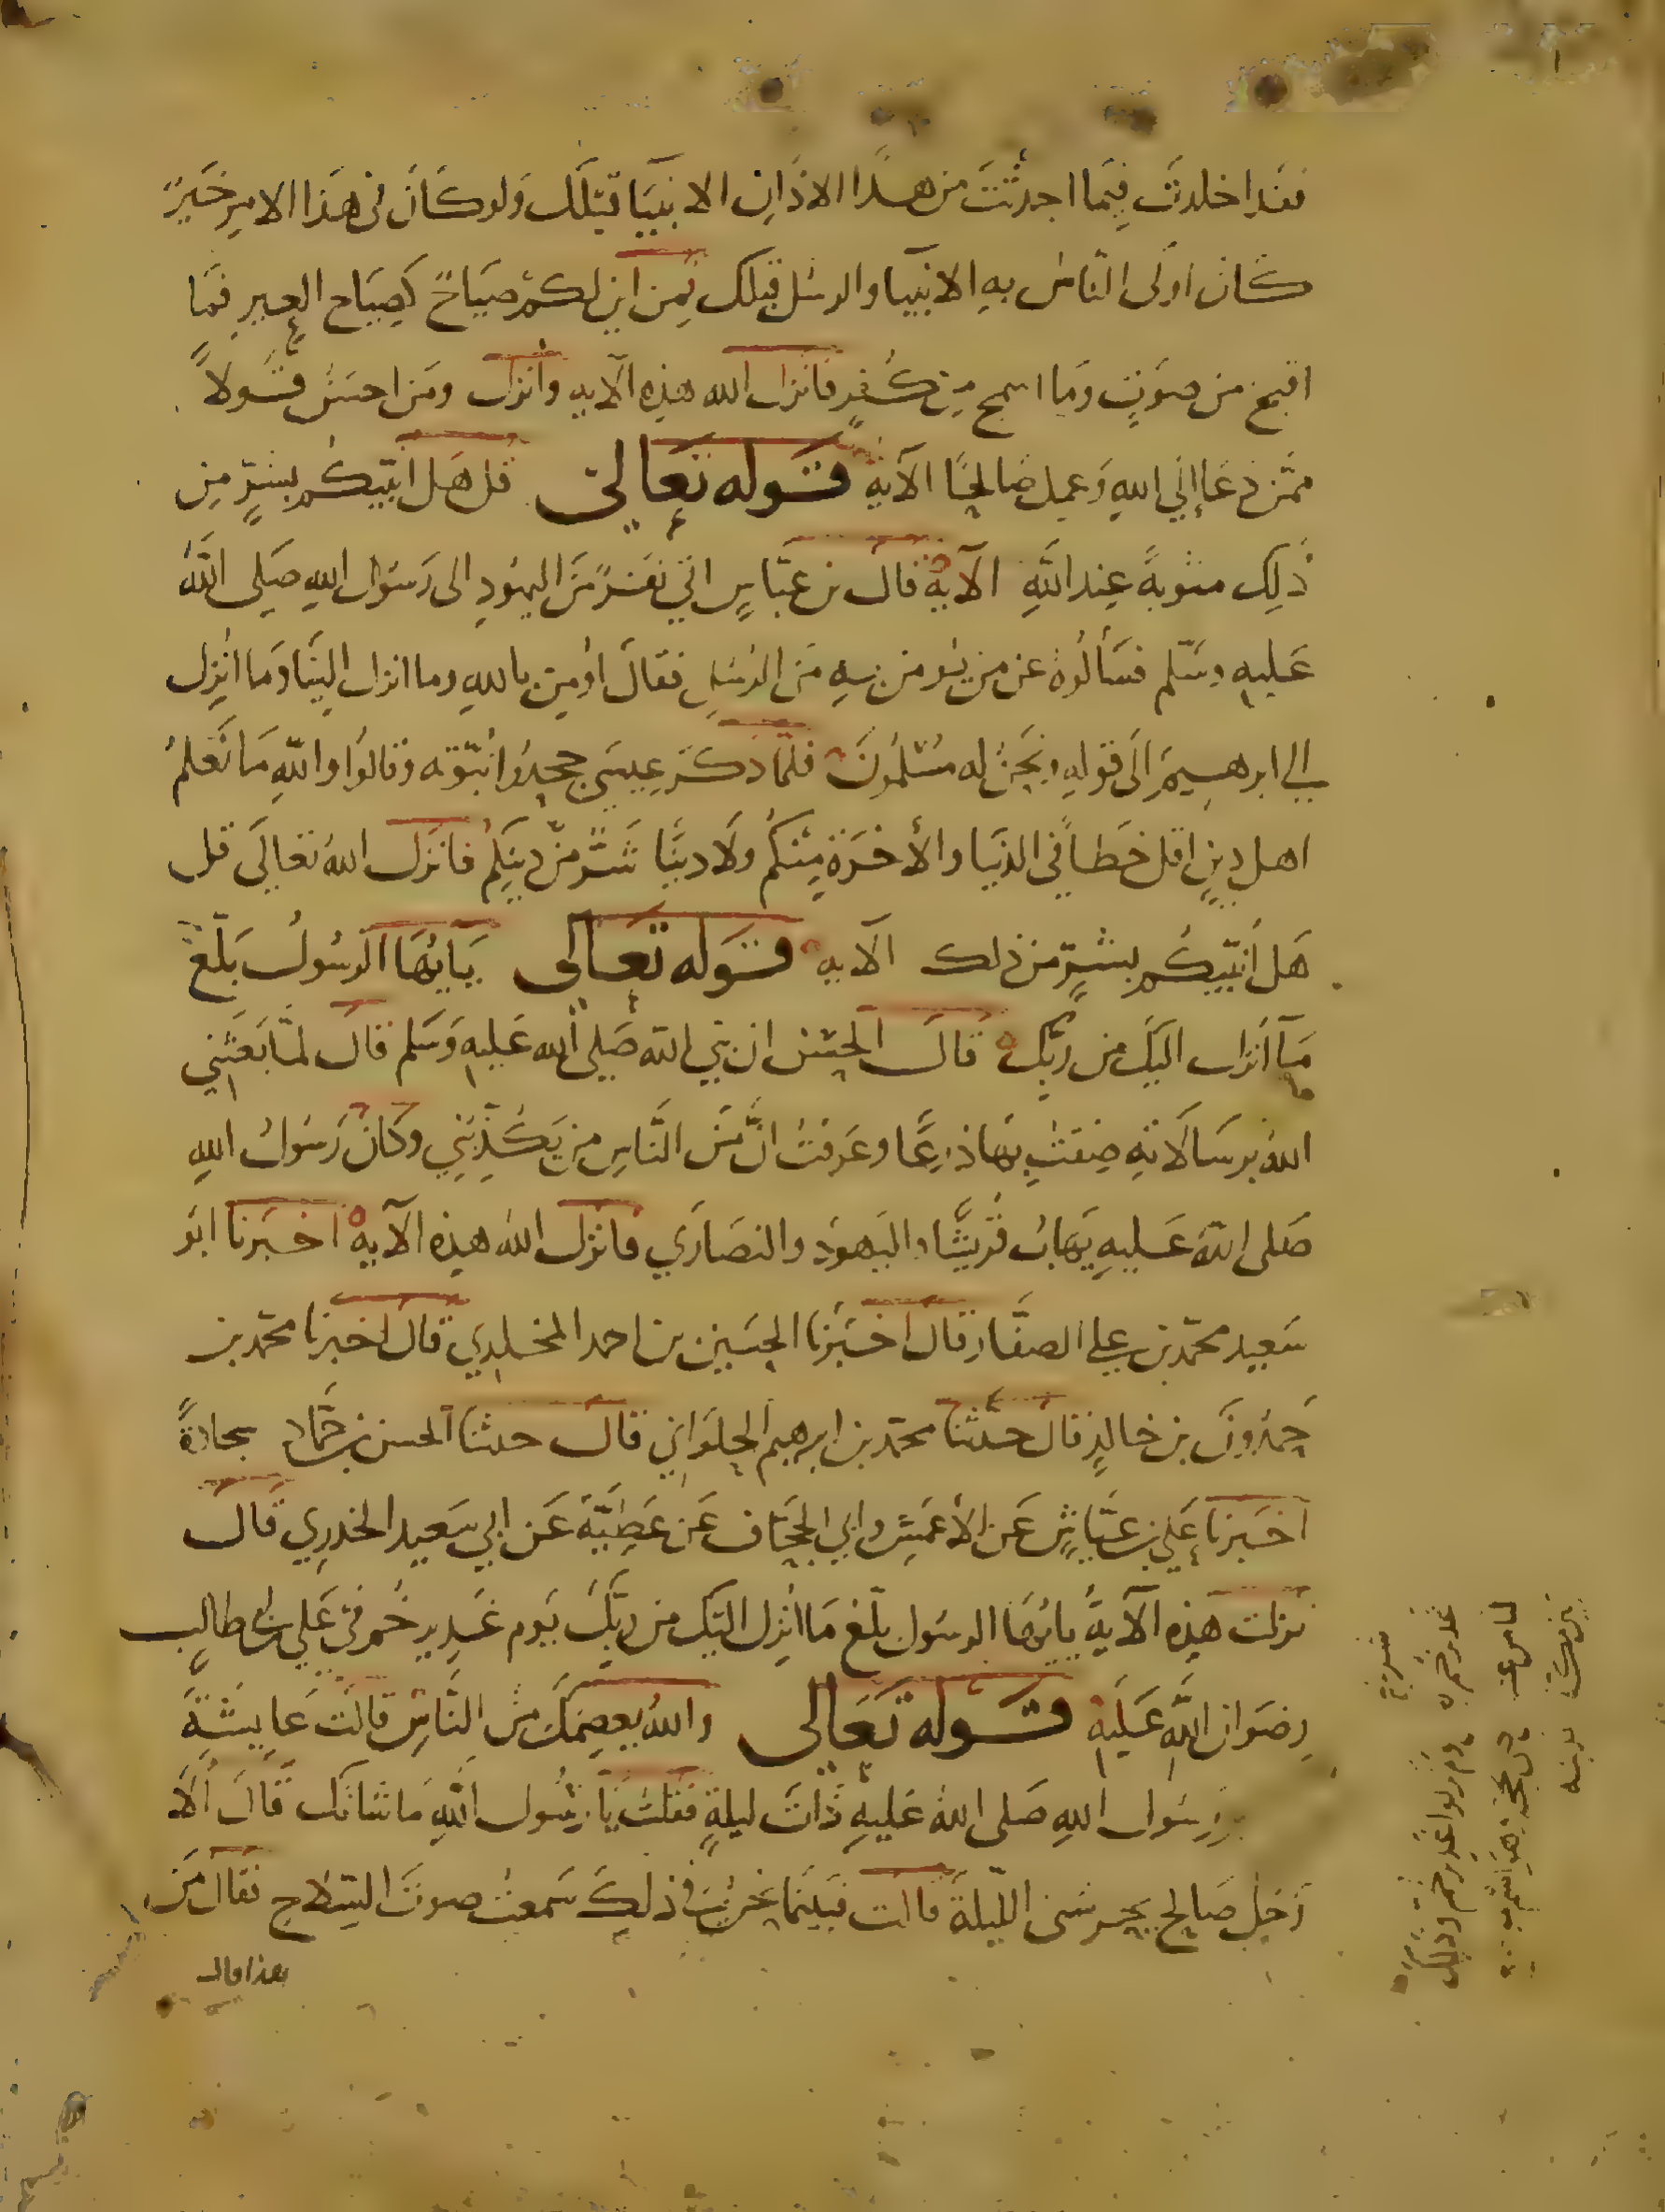 فقد اخلدت فِيمَا احدثتَ من هذا الاذان الانبيا قبلك ولو كان فى هذا الامر خير
كان اولى الناس به الانبيا والرسل قبلك فمن اين لكم صياح كصياح العير فما
اقبح من صوت وما اسمج من كفر فانزل الله هذه الآيه وانزل ومن احسن قولا
ممن دعا إلي الله وعمل صالحًا الآيه قوله تعالى قل هل انبيكم بشر من
ذلك مثوبة عند الله الآية قال بن عباس اتي نفر من اليهود الى رسول الله صلى الله
عليه وسلم فسألوه عن من يومن به من الرسل فقال اومن بالله وما انزل الينا وما انزل
الي ابرهيم الى قوله ونحن له مسلمون فلما ذكر عيسى جحدوا نبوته وقالوا والله ما نعلم
اهل دين اقل خطا في الدنيا والأخرة منكم ولا دينا شر من دينكم فانزل الله تعالى قل
هل أنبيكم بشر من ذلك الآيه قوله تعالى يايها الرسول بلغ
ما أنزل اليك من ربك قال الحسن ان نبي الله صلى الله عليه وسلم قال لما بعثني
الله برسالاته ضقت بها ذرعا وعرفت ان من الناس من يكذبني وكان رسول الله
صلى الله عليه يهاب قريشا واليهود والنصاري فانزل الله هذه الآية اخبرنا ابو
سعيد محمد بن علي الصفار قال اخبرنا الحسين بن احمد المخلدي قال اخبرنا محمد بن
حمدون بن خالد قال حدثنا محمد بن ابرهيم الحلواني قال حدثنا الحسن بن حماد سجادة
اخبرنا علي بن عياش عن الأعمش وابي الجحاف عن عطية عن ابي سعيد الخدري قال
نزلت هذه الآية يايها الرسول بلغ ما انزل اليك من ربك يوم غدير خم في علي بن ابي طالب
رضوان الله عليه قوله تعالى والله يعصمك من الناس قالت عايشة
رسول الله صلى الله عليه ذات ليلة فقلت يا رسول الله ما شانك قال ألا
رجل صالح يحرسنى الليلة قالت فبينما نحن في ذلك سمعت صوت السلاح فقال من
هذا قال